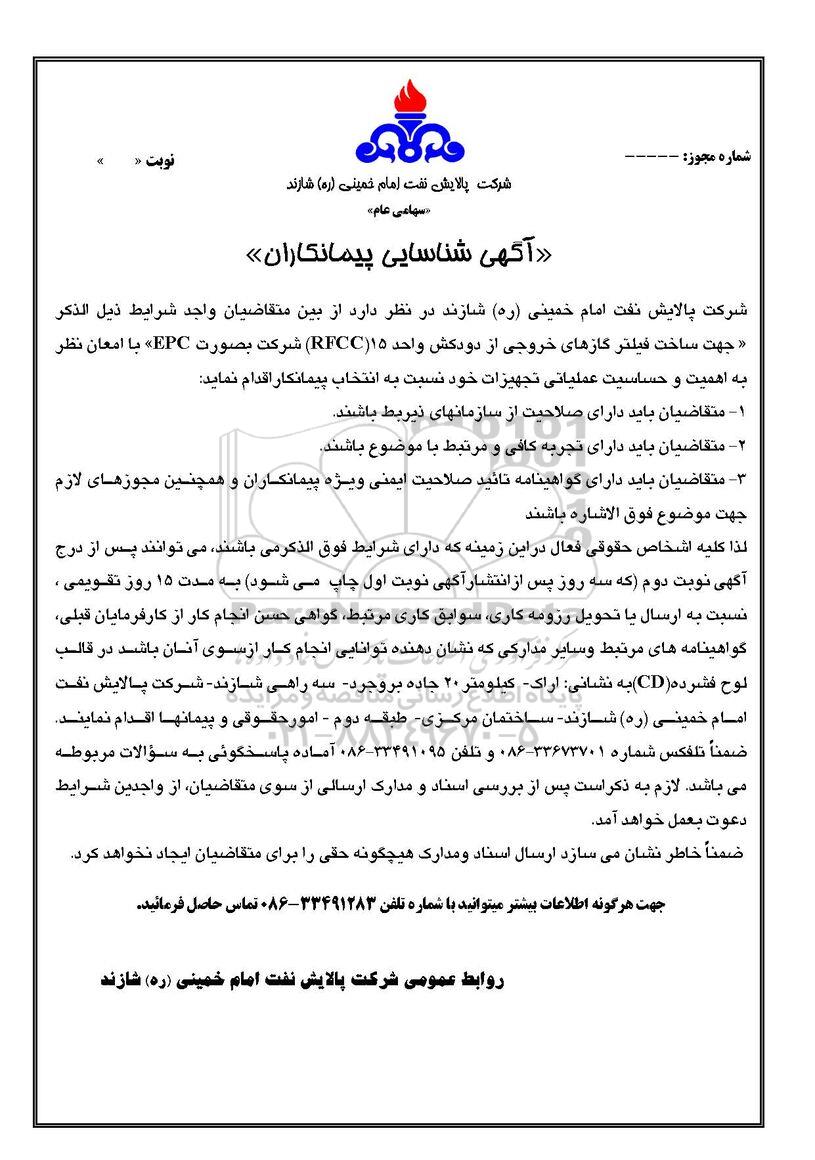 شماره مجوز: -----
نوبت « »
شرکت پالایش نفت امام خمینی (ره) شازند
«سهامی عام»
«آگهی شناسایی پیمانکاران»
شرکت پالایش نفت امام خمینی (ره) شازند در نظر دارد از بین متقاضیان واجد شرایط ذیل الذکر
« جهت ساخت فیلتر گازهای خروجی از دودکش واحد ۱۵(RFCC) شرکت بصورت EPC» با امعان نظر
به اهمیت و حساسیت عملیاتی تجهیزات خود نسبت به انتخاب پیمانکاراقدام نماید:
۱- متقاضیان باید دارای صلاحیت از سازمانهای ذیربط باشند.
۲- متقاضیان باید دارای تجربه کافی و مرتبط با موضوع باشند.
۳- متقاضیان باید دارای گواهینامه تائید صلاحیت ایمنی ویژه پیمانکاران و همچنین مجوزهای لازم
جهت موضوع فوق الاشاره باشند
لذا کلیه اشخاص حقوقی فعال دراین زمینه که دارای شرایط فوق الذکرمی باشند، می توانند پس از درج
آگهی نوبت دوم (که سه روز پس ازانتشارآگهی نوبت اول چاپ می شود) به مدت ۱۵ روز تقویمی ،
نسبت به ارسال یا تحویل رزومه کاری، سوابق کاری مرتبط، گواهی حسن انجام کار از کارفرمایان قبلی،
گواهینامه های مرتبط وسایر مدارکی که نشان دهنده توانایی انجام کار ازسوی آنان باشد در قالب
لوح فشرده(CD)به نشانی: اراک- کیلومتر ۲۰ جاده بروجرد- سه راهی شازند- شرکت پالایش نفت
امام خمینی (ره) شازند- ساختمان مرکزی- طبقه دوم - امورحقوقی و پیمانها اقدام نمایند.
ضمناً تلفکس شماره ۳۳۶۷۳۷۰۱-۰۸۶ و تلفن ۳۳۴۹۱۰۹۵-۰۸۶ آماده پاسخگوئی به سؤالات مربوطه
می باشد. لازم به ذکراست پس از بررسی اسناد و مدارک ارسالی از سوی متقاضیان، از واجدین شرایط
دعوت بعمل خواهد آمد.
ضمناً خاطر نشان می سازد ارسال اسناد ومدارک هیچگونه حقی را برای متقاضیان ایجاد نخواهد کرد.
جهت هرگونه اطلاعات بیشتر میتوانید با شماره تلفن ۳۳۴۹۱۲۸۳-۰۸۶ تماس حاصل فرمائید.
روابط عمومی شرکت پالایش نفت امام خمینی (ره) شازند
ParsNamadData
پایگاه اطلاع رسانی مناقصه و مزایده
۰۲۱-۸۸۳۴۹۶۷۰-۵